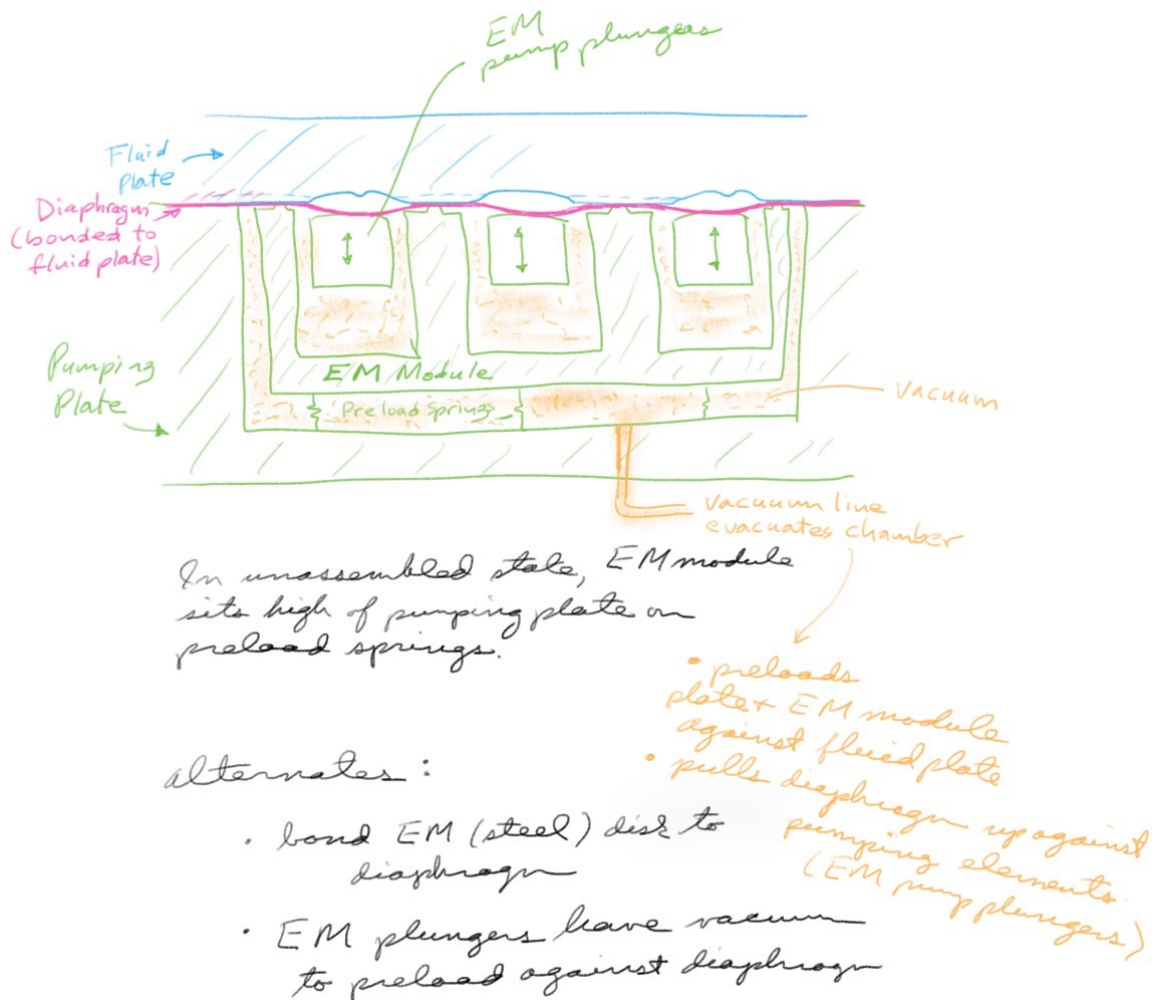 EM
pump plungers
Fluid
Plate
Diaphragm
(bonded to
fluid plate)
Pumping
Plate
EM Module
Preload Springs
vacuum
vacuum line
evacuates chamber
In unassembled state, EM module
sits high of pumping plate on
preload springs.
• preloads
plate + EM module
against fluid plate
• pulls diaphragm up against
pumping elements
(EM pump plungers)
alternates:
• bond EM (steel) disk to
diaphragm
• EM plungers leave vacuum
to preload against diaphragm